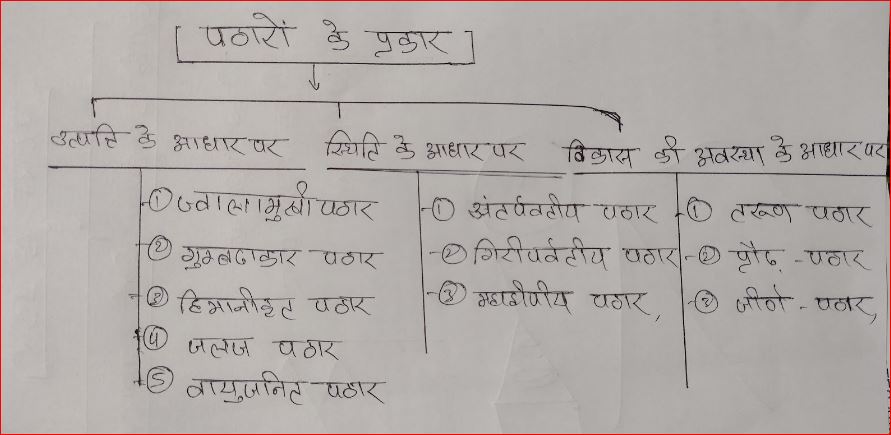 पठारों के प्रकार
उत्पत्ति के आधार पर
① ज्वालामुखी पठार
② गुम्बदाकार पठार
③ हिमानीकृत पठार
④ जलज पठार
⑤ वायुजनित पठार
स्थिति के आधार पर
① अंतर्पवतीय पठार
② गिरीपर्वतीय पठार
③ महाद्वीपीय पठार,
विकास की अवस्था के आधार पर
① तरूण पठार
② प्रौढ़ - पठार
③ जीर्ण - पठार,